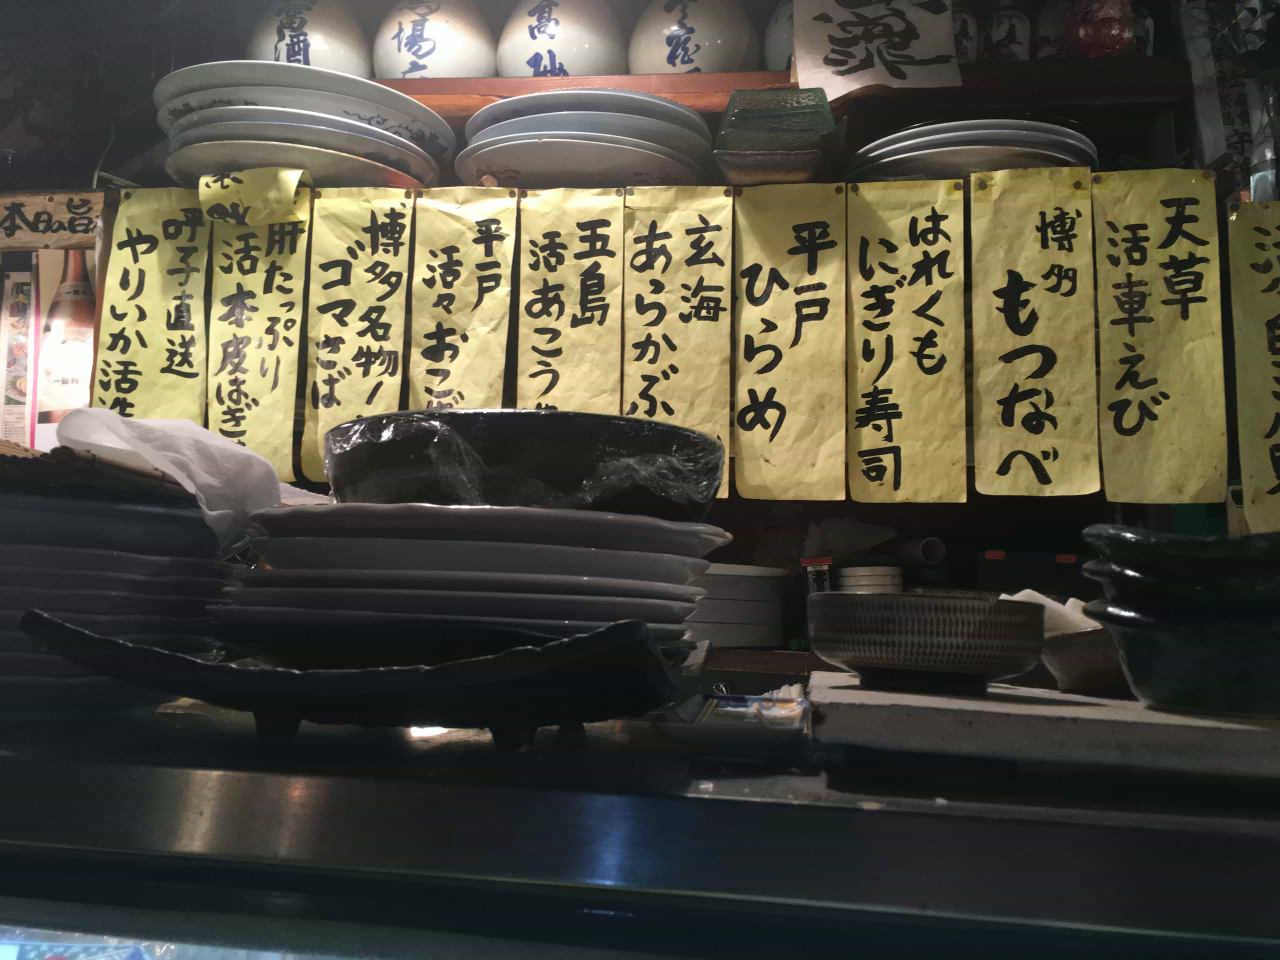 富酒
場
高砂
本日の旨
天草
活車えび
博多
もつなべ
はれくも
にぎり寿司
平戸
ひらめ
玄海
あらかぶ
五島
活あこう
平戸
活々おこ
博多名物！
ゴマさば
肝たっぷり
活本皮はぎ
呼子直送
やりいか活造